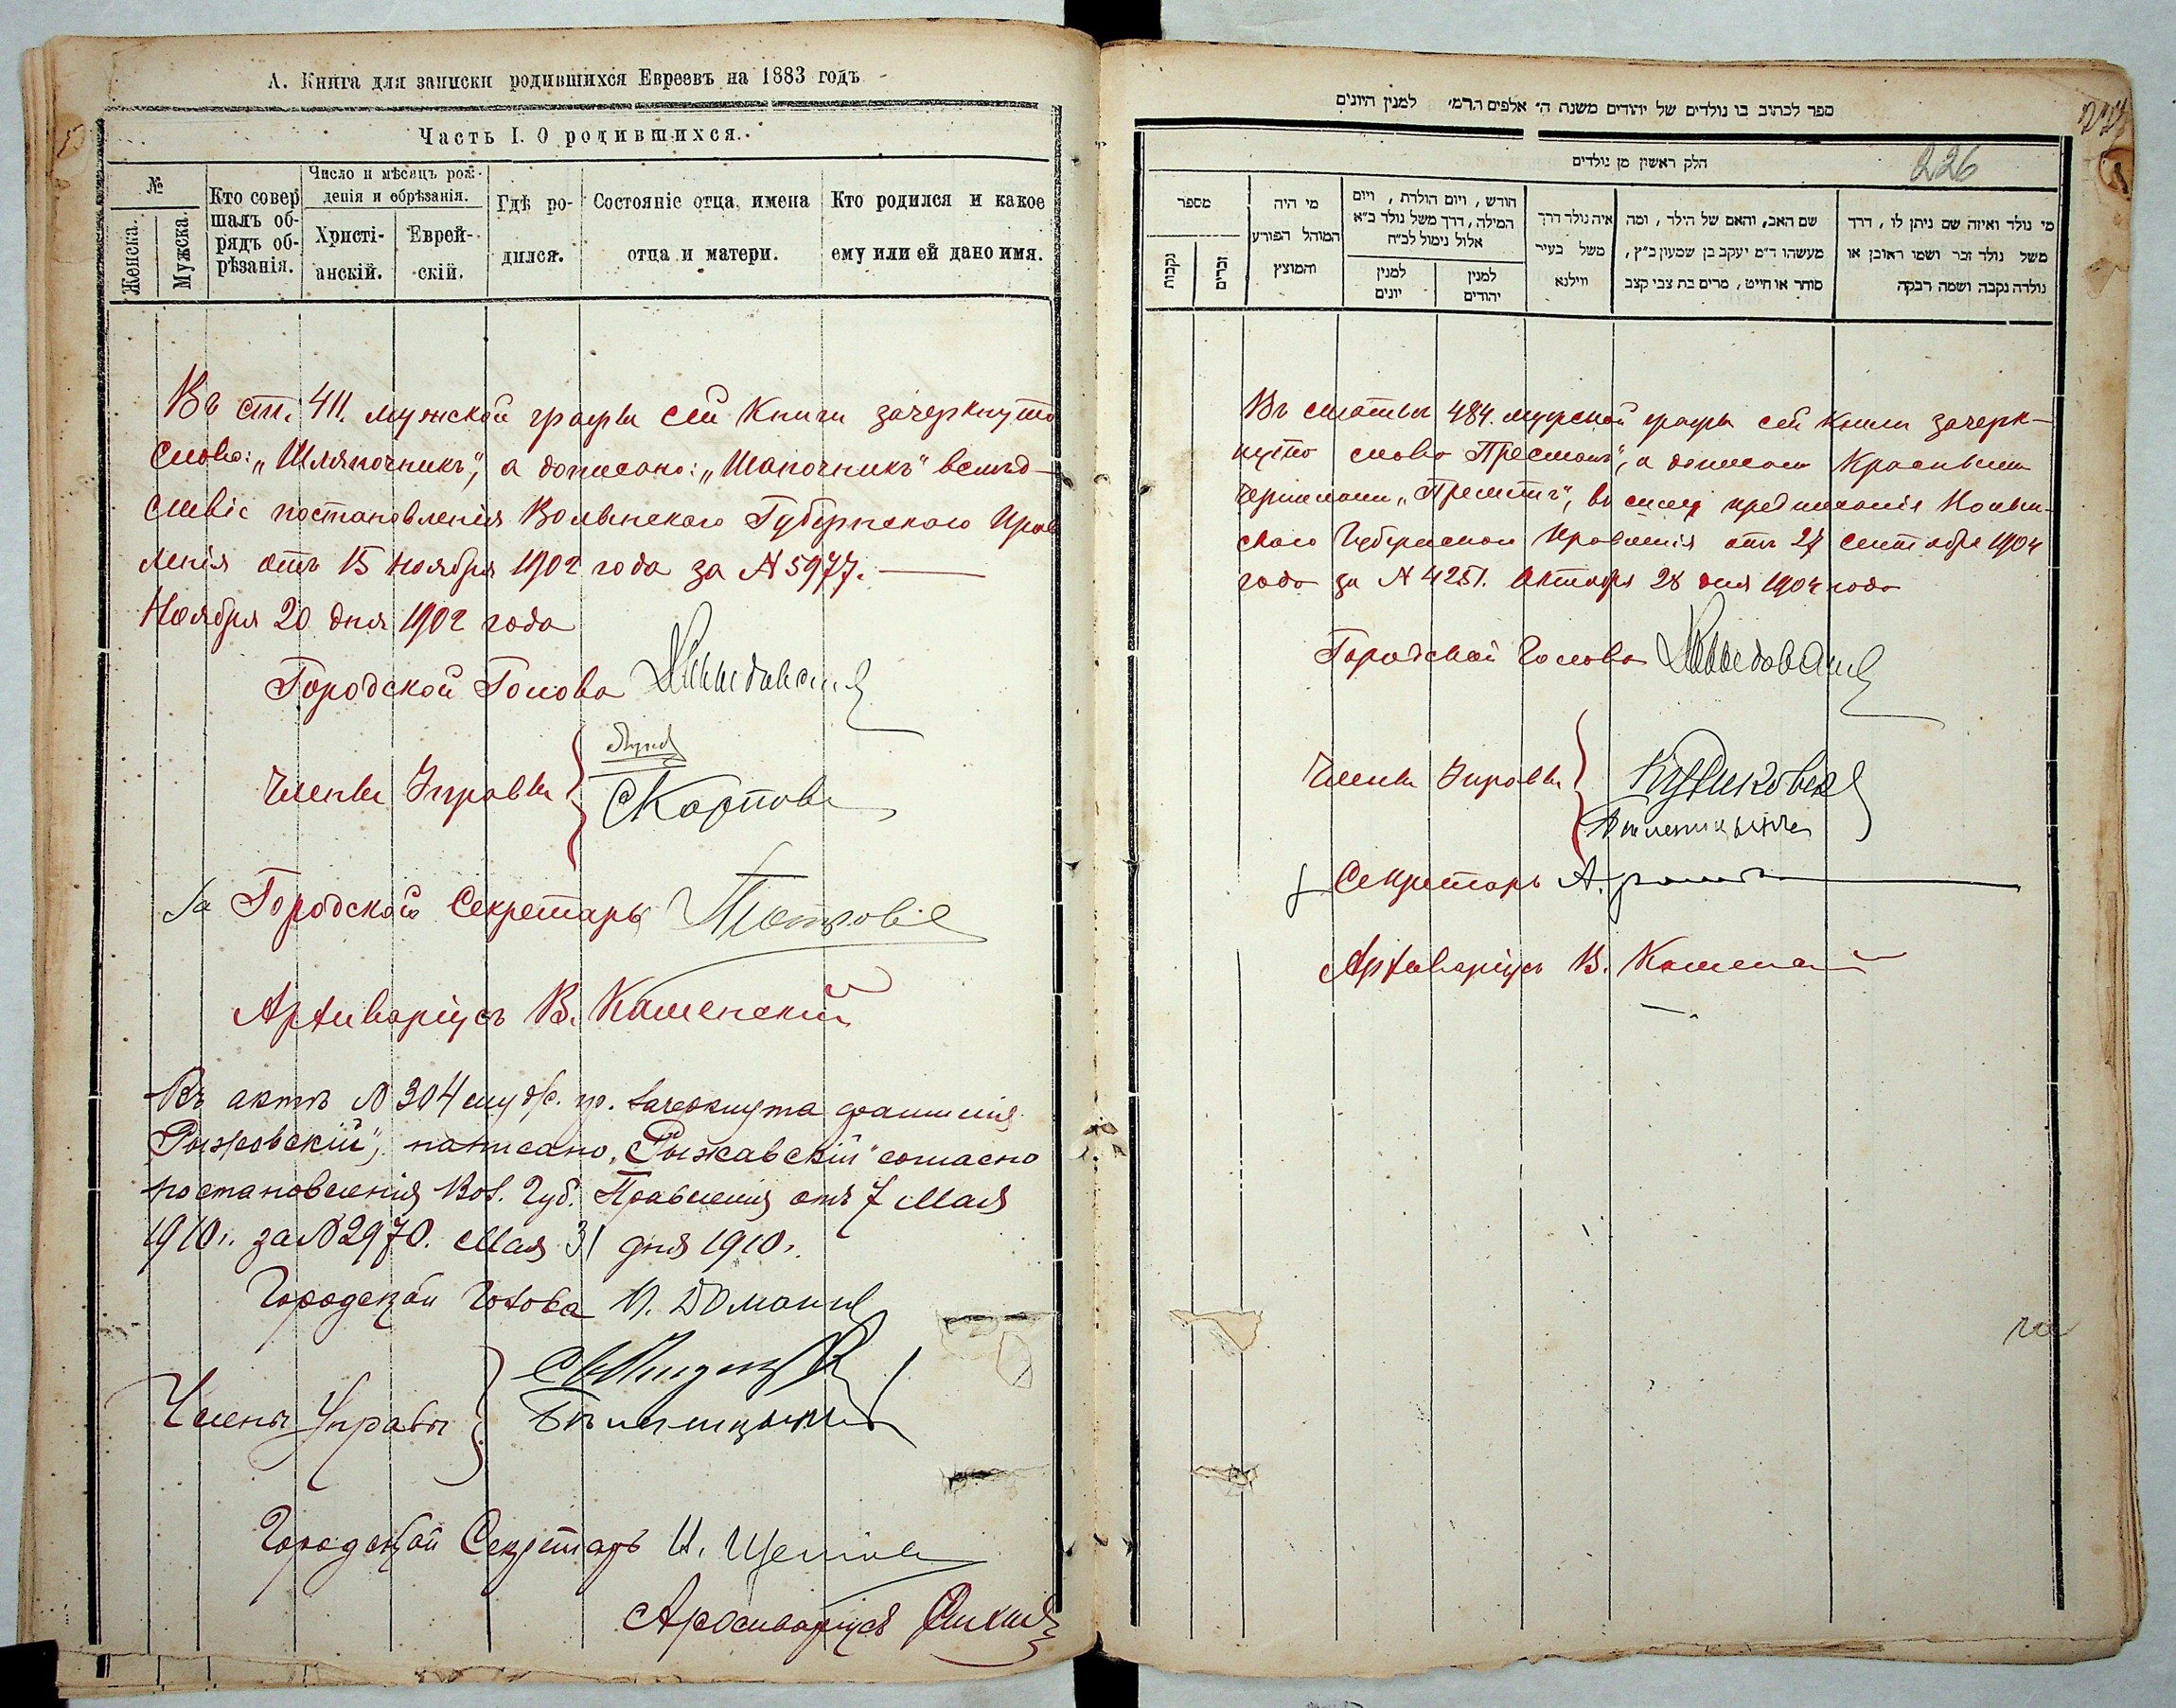 А. Книга для записки родившихся Евреевъ на 1883 годъ
Часть I. О родившихся.
№
Женска.
Мужска.
Кто совер
шалъ об-
рядъ об-
рѣзанія.
Число и мѣсяцъ рож-
денія и обрѣзанія.
Христі-
анскій.
Еврей-
скій.
Гдѣ ро-
дился.
Состояніе отца, имена
отца и матери.
Кто родился и какое
ему или ей дано имя.
Въ ст. 411. мужской графы сей Книги зачеркнуто
слово: „Шляпочникъ", а дописано: „Шапочникъ" вслѣд-
ствіе постановленія Волынскаго Губернскаго Прав
ленія отъ 15 Ноября 1902 года за № 5977.
Ноября 20 дня 1902 года
Городской Голова
Члены Управы
СКарпов
За Городского Секретаря
Архиваріусъ В. Каменскій
Въ актѣ № 304 муж. гр. зачеркнута фамилія
„Рыжовскій", написано „Рыжавскій" согласно
постановленія Вол. Губ. Правленія отъ 7 Мая
1910 г. за № 2970. Мая 31 дня 1910 г.
Городской Голова
Члены Управы
Городской Секретарь
Архиваріусъ
ספר לכתוב בו נולדים של יהודים משנת ה' אלפים תרמ' למנין היונים
226
חלק ראשון מן נולדים
מספר
נקבות
זכרים
מי היה
המוהל הפורע
והמוצץ
חודש, ויום הולדת, ויום
המילה, דרך משל נולד ב"א
אלול נימול לב"ח
למנין
יונים
למנין
יהודים
איה נולד דרך
משל בעיר
ווילנא
שם האב, והאם של הילד, ומה
מעשהו ד"מ יעקב בן שמעון כ"ץ,
סוחר או חייט, מרים בת צבי קצב
מי נולד ואיזה שם ניתן לו, דרך
משל נולד זכר ושמו ראובן או
נולדה נקבה ושמה רבקה
Въ статьѣ 484. мужской графы сей Книги зачерк-
нуто слово „Пресманъ", а дописано Красными
чернилами в силу предписанія Волын-
скаго Губернскаго Правленія отъ 27 Сентября 1904
года за № 4251. Октября 28 дня 1904 года
Городской Голова
Члены Управы
Секретарь
Архиваріусъ В. Каменскій